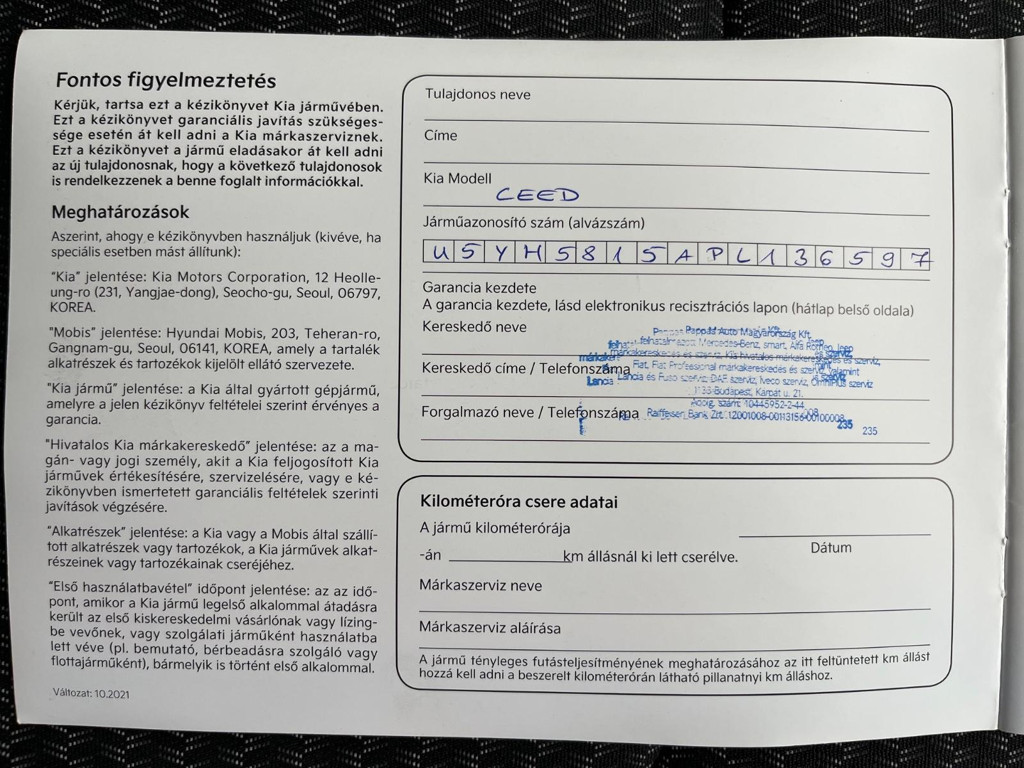 Fontos figyelmeztetés
Kérjük, tartsa ezt a kézikönyvet Kia járművében.
Ezt a kézikönyvet garanciális javítás szükséges-
sége esetén át kell adni a Kia márkaszerviznek.
Ezt a kézikönyvet a jármű eladásakor át kell adni
az új tulajdonosnak, hogy a következő tulajdonosok
is rendelkezzenek a benne foglalt információkkal.
Meghatározások
Aszerint, ahogy e kézikönyvben használjuk (kivéve, ha
speciális esetben mást állítunk):
"Kia" jelentése: Kia Motors Corporation, 12 Heolle-
ung-ro (231, Yangjae-dong), Seocho-gu, Seoul, 06797,
KOREA.
"Mobis" jelentése: Hyundai Mobis, 203, Teheran-ro,
Gangnam-gu, Seoul, 06141, KOREA, amely a tartalék
alkatrészek és tartozékok kijelölt ellátó szervezete.
"Kia jármű" jelentése: a Kia által gyártott gépjármű,
amelyre a jelen kézikönyv feltételei szerint érvényes a
garancia.
"Hivatalos Kia márkakereskedő" jelentése: az a ma-
gán- vagy jogi személy, akit a Kia feljogosított Kia
járművek értékesítésére, szervizelésére, vagy e ké-
zikönyvben ismertetett garanciális feltételek szerinti
javítások végzésére.
"Alkatrészek" jelentése: a Kia vagy a Mobis által szállí-
tott alkatrészek vagy tartozékok, a Kia járművek alkat-
részeinek vagy tartozékainak cseréjéhez.
"Első használatbavétel" időpont jelentése: az az idő-
pont, amikor a Kia jármű legelső alkalommal átadásra
került az első kiskereskedelmi vásárlónak vagy lízing-
be vevőnek, vagy szolgálati járműként használatba
lett véve (pl. bemutató, bérbeadásra szolgáló vagy
flottajárműként), bármelyik is történt első alkalommal.
Változat: 10.2021
Tulajdonos neve
Címe
Kia Modell
CEED
Járműazonosító szám (alvázszám)
U5YH5815APL136597
Garancia kezdete
A garancia kezdete, lásd elektronikus recisztrációs lapon (hátlap belső oldala)
Kereskedő neve
Pappas Auto Magyarország Kft.
felhatalmazott Mercedes-Benz, smart, Alfa Romeo, Jeep
márkakereskedés és szerviz, Kia hivatalos márkakereskedés és szerviz,
Kereskedő címe / Telefonszáma
Fiat, Fiat Professional márkakereskedés és szerviz, valamint
Lancia és Fuso szerviz, DAF szerviz, Iveco szerviz, Omniplus szerviz
1133 Budapest, Kárpát u. 21.
Adóig. szám: 10445952-2-44
Forgalmazó neve / Telefonszáma
Raiffeisen Bank Zrt. 12001008-00113156-00100008
235
235
Kilométeróra csere adatai
A jármű kilométerórája
Dátum
-án km állásnál ki lett cserélve.
Márkaszerviz neve
Márkaszerviz aláírása
A jármű tényleges futásteljesítményének meghatározásához az itt feltüntetett km állást
hozzá kell adni a beszerelt kilométerórán látható pillanatnyi km álláshoz.